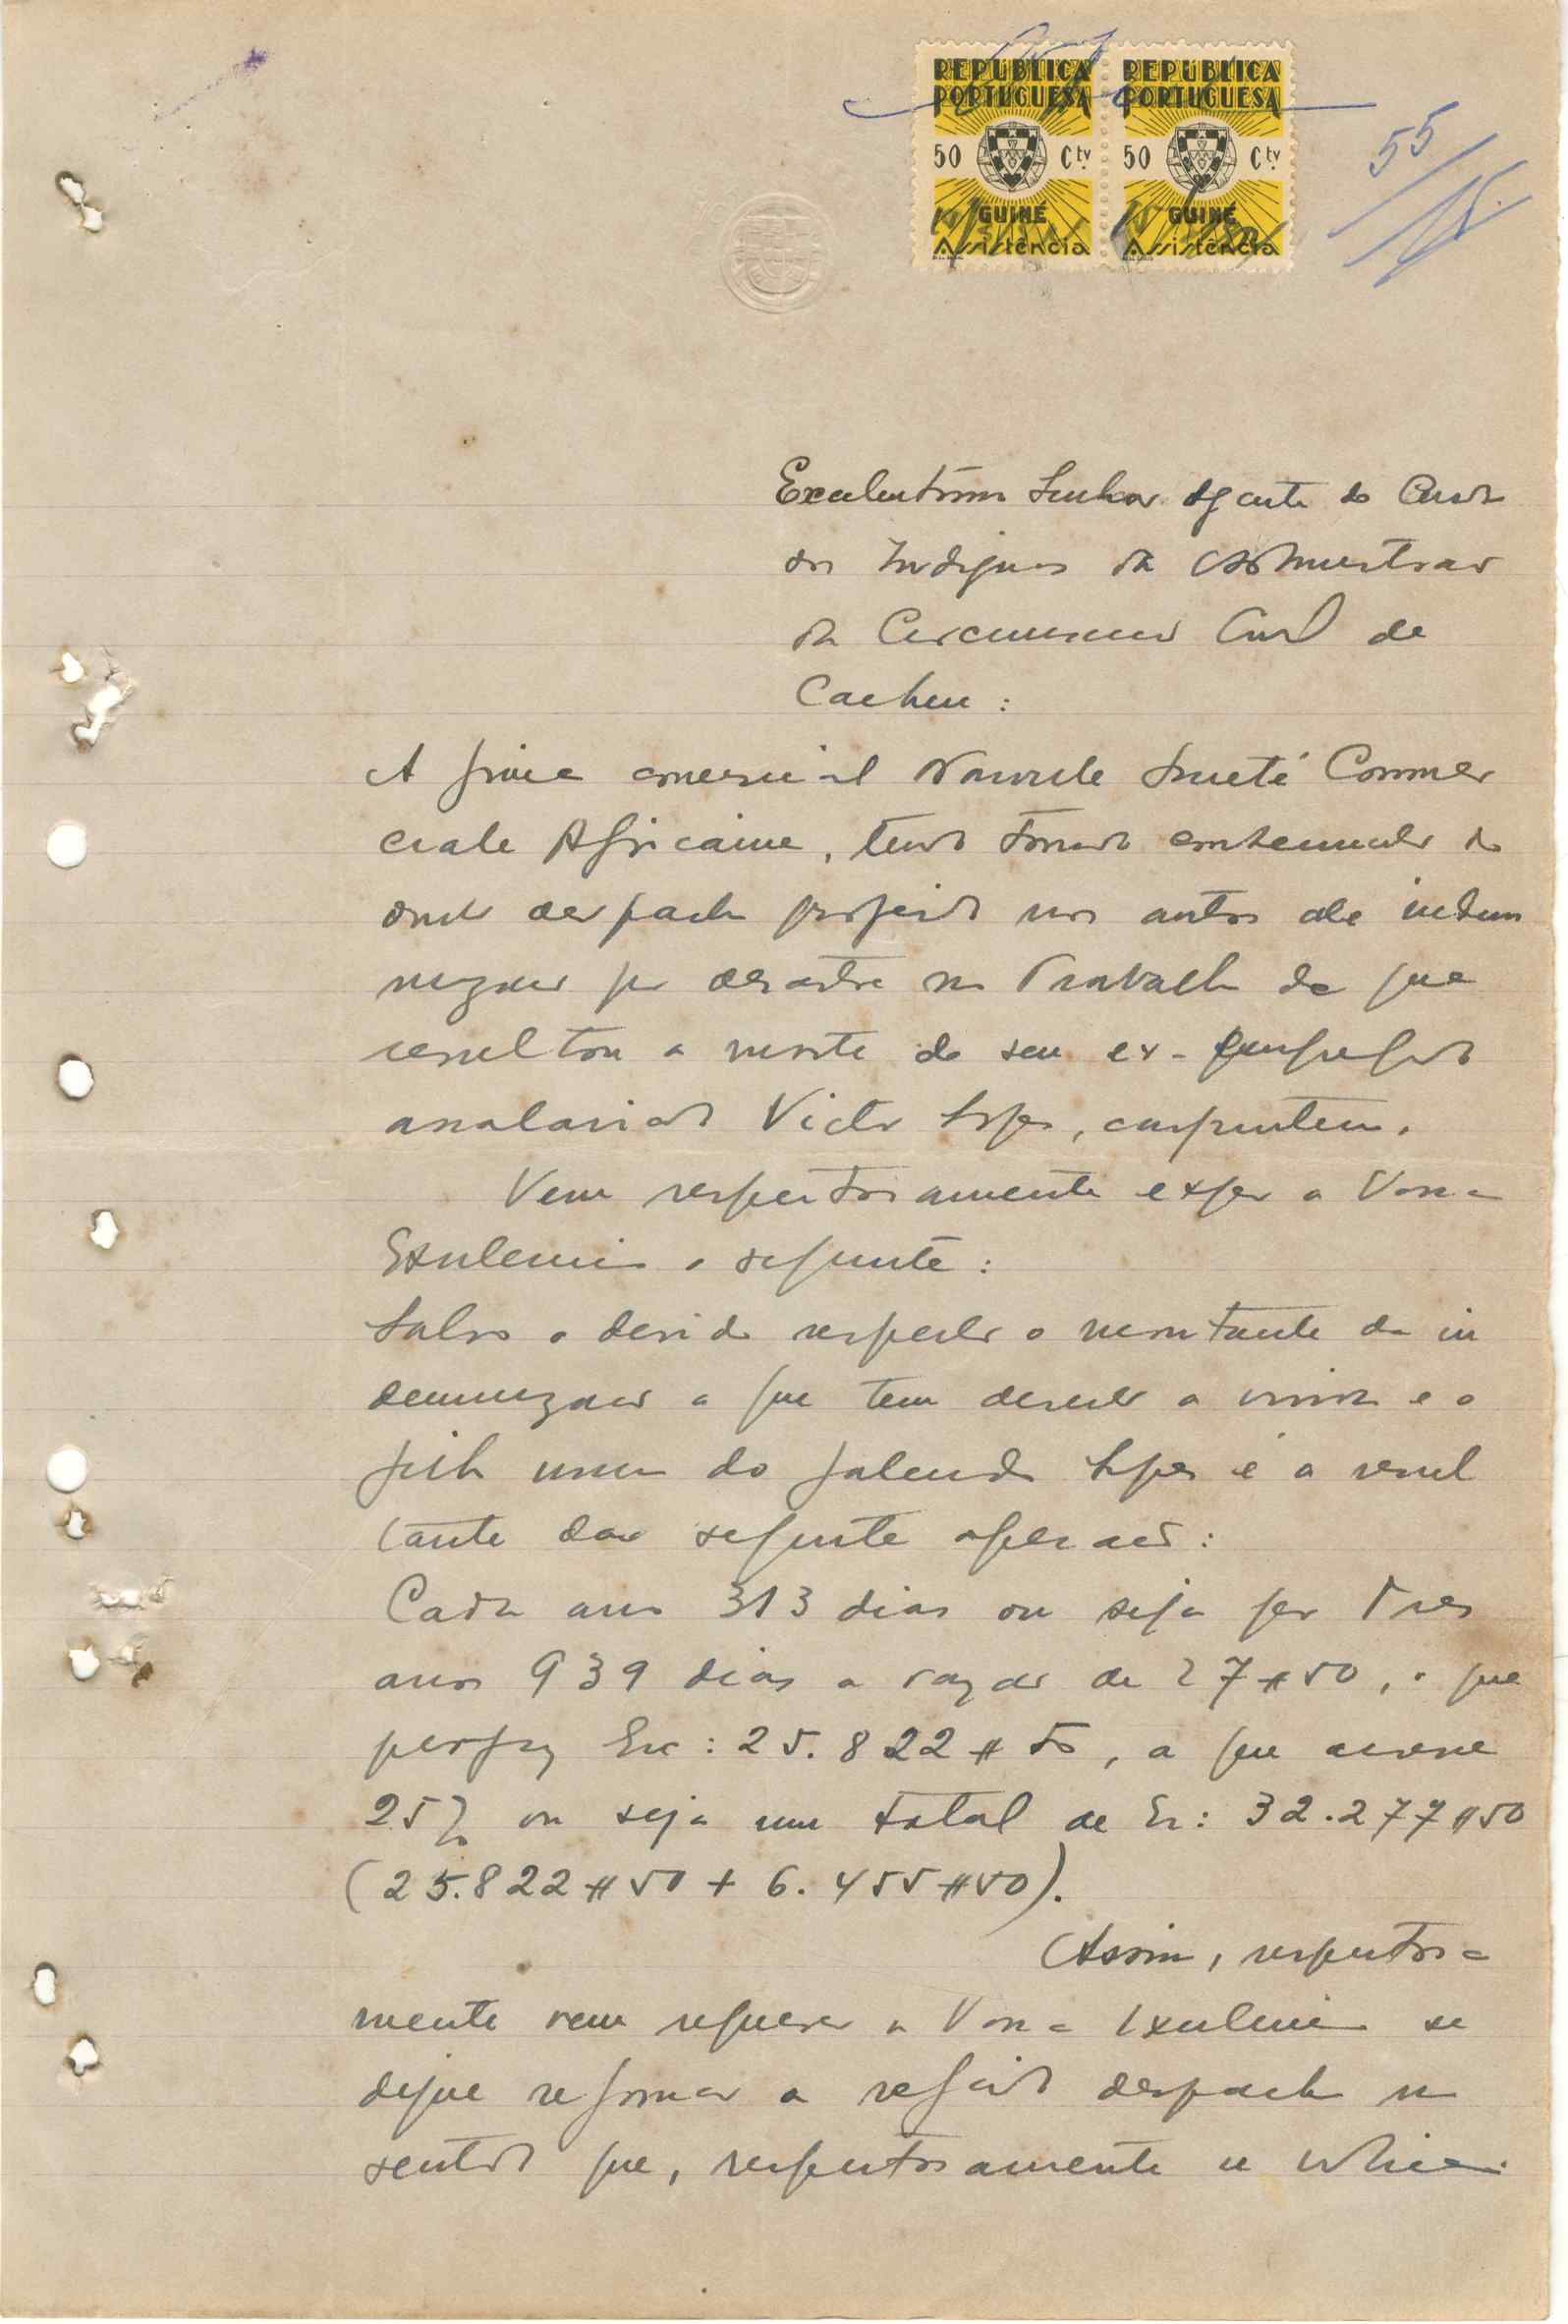 REPÚBLICA PORTUGUESA 50 Ctv. GUINÉ Assistência
REPÚBLICA PORTUGUESA 50 Ctv. GUINÉ Assistência
55
Excelentíssimo Senhor Agente do Curador
dos Indígenas da Administração
da Circunscrição Civil de
Cacheu :
A firma comercial Nouvele Société Commer
ciale Africaine, tendo tomado conhecimento do
douto despacho proferido nos autos de indem
nização por desastre no trabalho de que
resultou a morte do seu ex-empregado
assalariado Victor Lopes, carpinteiro.
Vem respeitosamente expor a Vossa
Excelencia o seguinte :
Salvo o devido respeito o montante da in
demnização a que tem direito a viuva e o
filho menor do falecido Lopes é a resul
tante da seguinte operação :
Cada ano 313 dias ou seja por tres
anos 939 dias a razão de 27$50, o que
perfaz Esc: 25.822$50, a que acresce
25% ou seja um total de Esc: 32.277$50
(25.822$50 + 6.455$50).
Assim, respeitosa
mente vem requerer a Vossa Excelencia se
digne reformar o referido despacho no
sentido que, respeitosamente se indica.